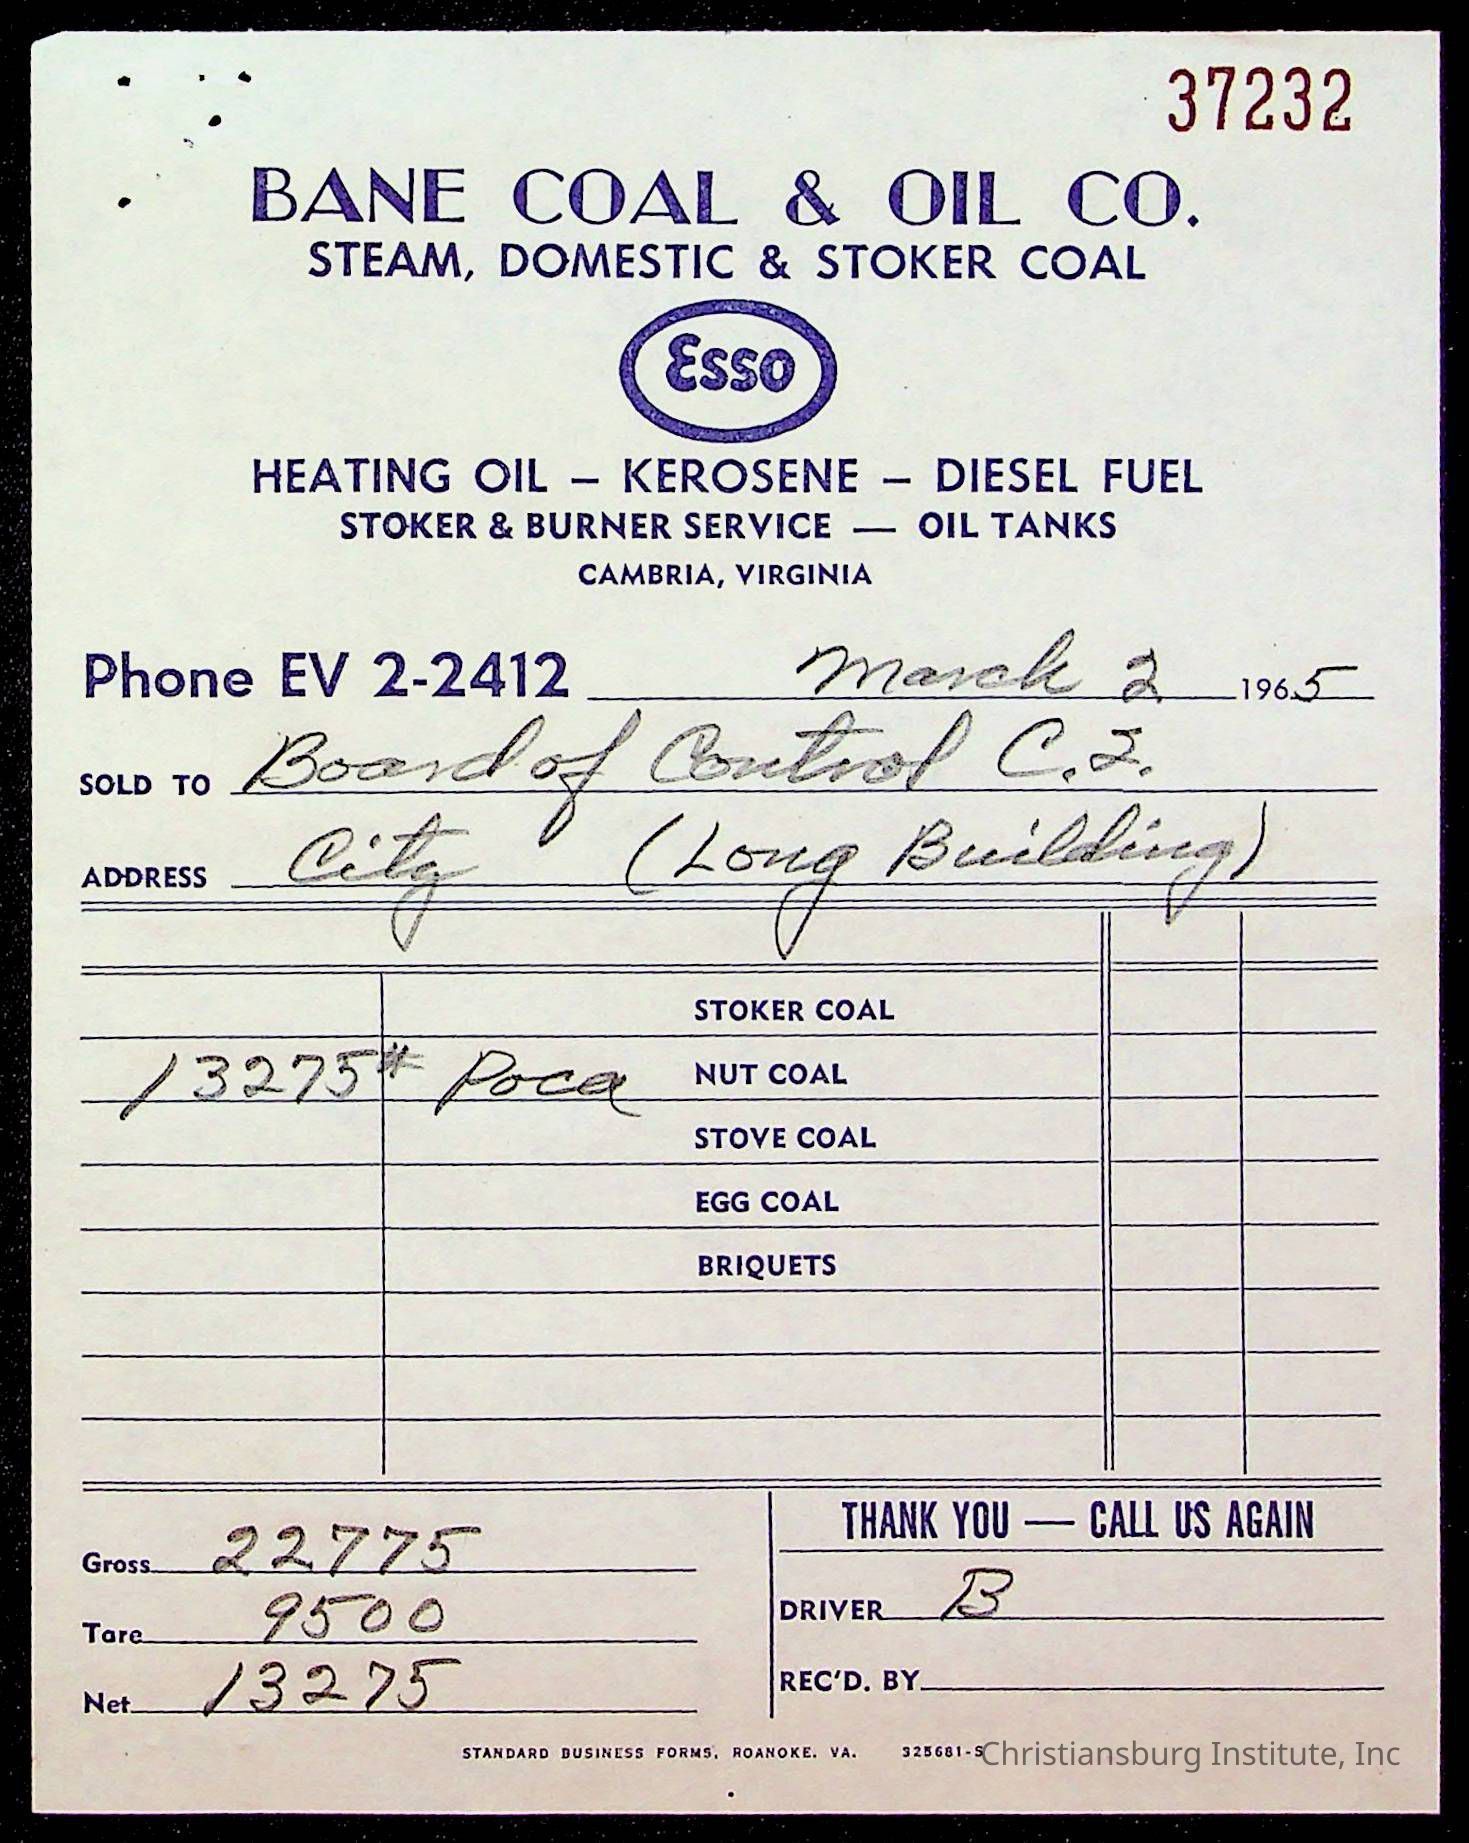 37232
BANE COAL & OIL CO.
STEAM, DOMESTIC & STOKER COAL
Esso
HEATING OIL – KEROSENE – DIESEL FUEL
STOKER & BURNER SERVICE — OIL TANKS
CAMBRIA, VIRGINIA
Phone EV 2-2412 March 2 1965
SOLD TO Board of Control C.I.
ADDRESS City (Long Building)
STOKER COAL
13275# Poca NUT COAL
STOVE COAL
EGG COAL
BRIQUETS
THANK YOU — CALL US AGAIN
Gross 22775
Tare 9500
Net 13275
DRIVER B
REC'D. BY
STANDARD BUSINESS FORMS, ROANOKE, VA. 325681-S
Christiansburg Institute, Inc